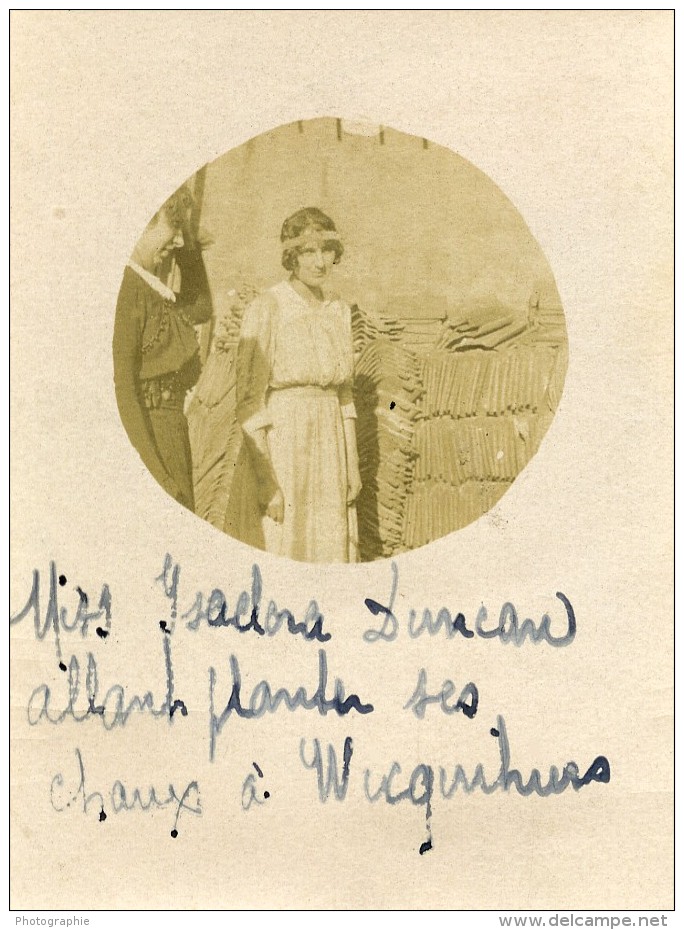 Miss Isadora Duncan
allant planter ses
choux à Wicquinhues
Photographie
www.delcampe.net